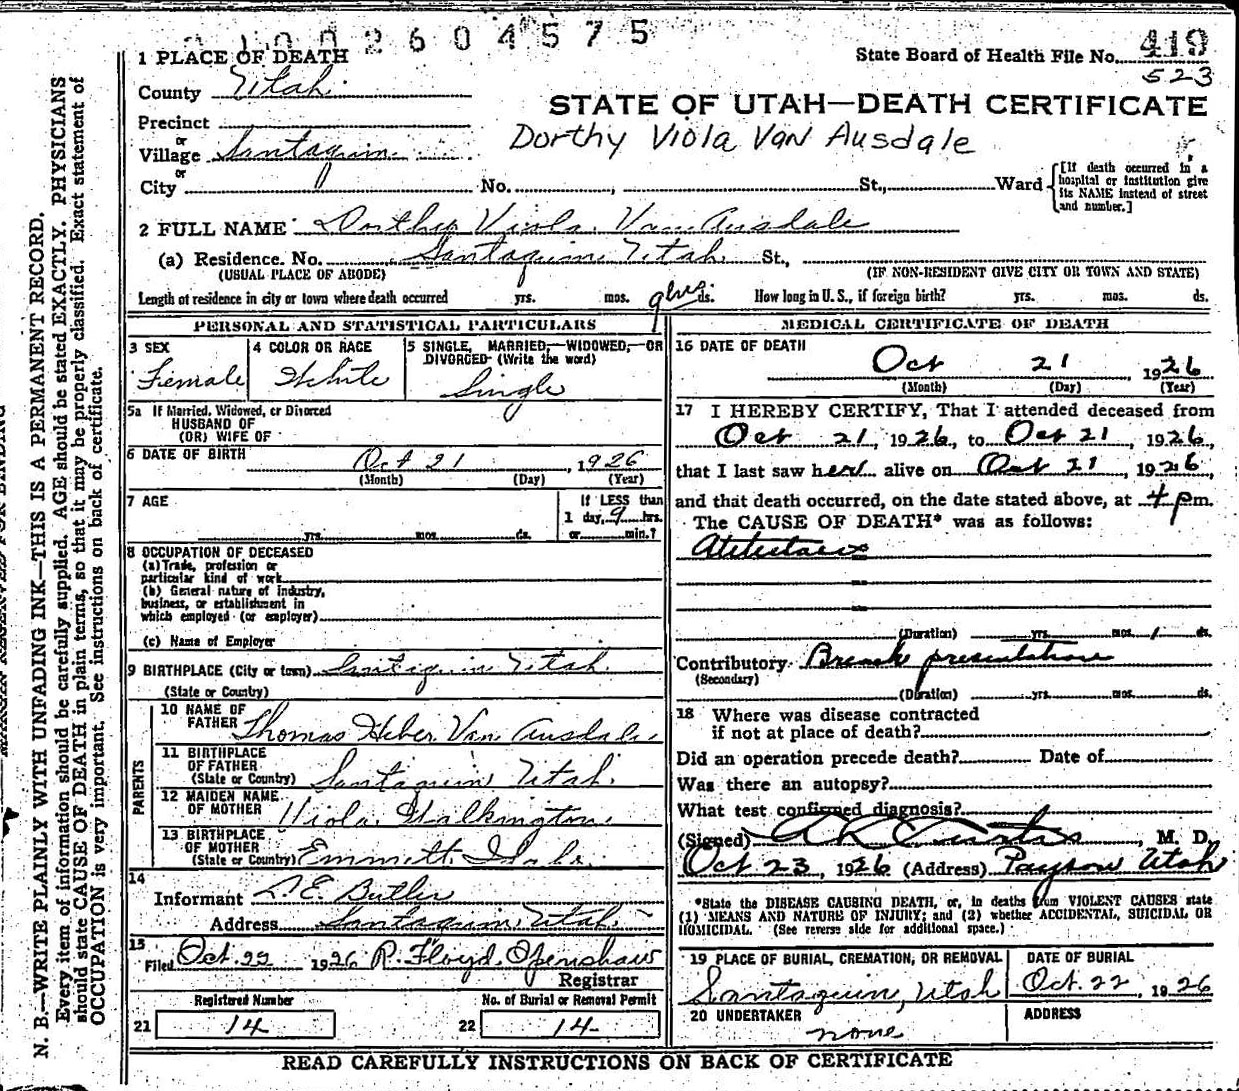 2604575
1 PLACE OF DEATH
State Board of Health File No. 419
523
County Utah.
STATE OF UTAH—DEATH CERTIFICATE
Precinct
Dorthy Viola Van Ausdale
or
Village Santaquin
or
City No. , St., Ward
[If death occurred in a hospital or institution give its NAME instead of street and number.]
2 FULL NAME Dorthy Viola Van Ausdale
(a) Residence. No. Santaquin Utah St.,
(USUAL PLACE OF ABODE) (IF NON-RESIDENT GIVE CITY OR TOWN AND STATE)
Length of residence in city or town where death occurred yrs. mos. 9 hrs ds. How long in U. S., if foreign birth? yrs. mos. ds.
PERSONAL AND STATISTICAL PARTICULARS
3 SEX
Female
4 COLOR OR RACE
White
5 SINGLE, MARRIED, WIDOWED, OR
DIVORCED (Write the word)
Single
5a If Married, Widowed, or Divorced
HUSBAND OF
(OR) WIFE OF
6 DATE OF BIRTH Oct 21, 1926
(Month) (Day) (Year)
7 AGE
yrs. mos. ds.
If LESS than
1 day, 9 hrs.
or min.?
8 OCCUPATION OF DECEASED
(a) Trade, profession or
particular kind of work
(b) General nature of industry,
business, or establishment in
which employed (or employer)
(c) Name of Employer
9 BIRTHPLACE (City or town) Santaquin Utah.
(State or Country)
PARENTS
10 NAME OF
FATHER Thomas Heber Van Ausdale
11 BIRTHPLACE
OF FATHER
(State or Country) Santaquin Utah.
12 MAIDEN NAME
OF MOTHER Viola Halkington
13 BIRTHPLACE
OF MOTHER
(State or Country) Emmett Idaho.
14
Informant L. E. Butler
Address Santaquin Utah
15
Filed Oct. 22 1926 R. Floyd Openshaw
Registrar
Registered Number No. of Burial or Removal Permit
21 14 22 14
MEDICAL CERTIFICATE OF DEATH
16 DATE OF DEATH
Oct 21 1926
(Month) (Day) (Year)
17 I HEREBY CERTIFY, That I attended deceased from
Oct 21, 1926, to Oct 21, 1926,
that I last saw her alive on Oct 21, 1926
and that death occurred, on the date stated above, at 4 pm.
The CAUSE OF DEATH* was as follows:
Atelectasis
(Duration) yrs. mos. 1 ds.
Contributory Breach presentation
(Secondary)
(Duration) yrs. mos. ds.
18 Where was disease contracted
if not at place of death?
Did an operation precede death? Date of
Was there an autopsy?
What test confirmed diagnosis?
(Signed) A L Curtis, M. D.
Oct 23, 1926 (Address) Payson Utah
*State the DISEASE CAUSING DEATH, or, in deaths from VIOLENT CAUSES state
(1) MEANS AND NATURE OF INJURY; and (2) whether ACCIDENTAL, SUICIDAL OR
HOMICIDAL. (See reverse side for additional space.)
19 PLACE OF BURIAL, CREMATION, OR REMOVAL
Santaquin, Utah
DATE OF BURIAL
Oct. 22, 1926
20 UNDERTAKER
none
ADDRESS
READ CAREFULLY INSTRUCTIONS ON BACK OF CERTIFICATE
N. B.—WRITE PLAINLY WITH UNFADING INK—THIS IS A PERMANENT RECORD.
Every item of information should be carefully supplied. AGE should be stated EXACTLY. PHYSICIANS
should state CAUSE OF DEATH in plain terms, so that it may be properly classified. Exact statement of
OCCUPATION is very important. See instructions on back of certificate.